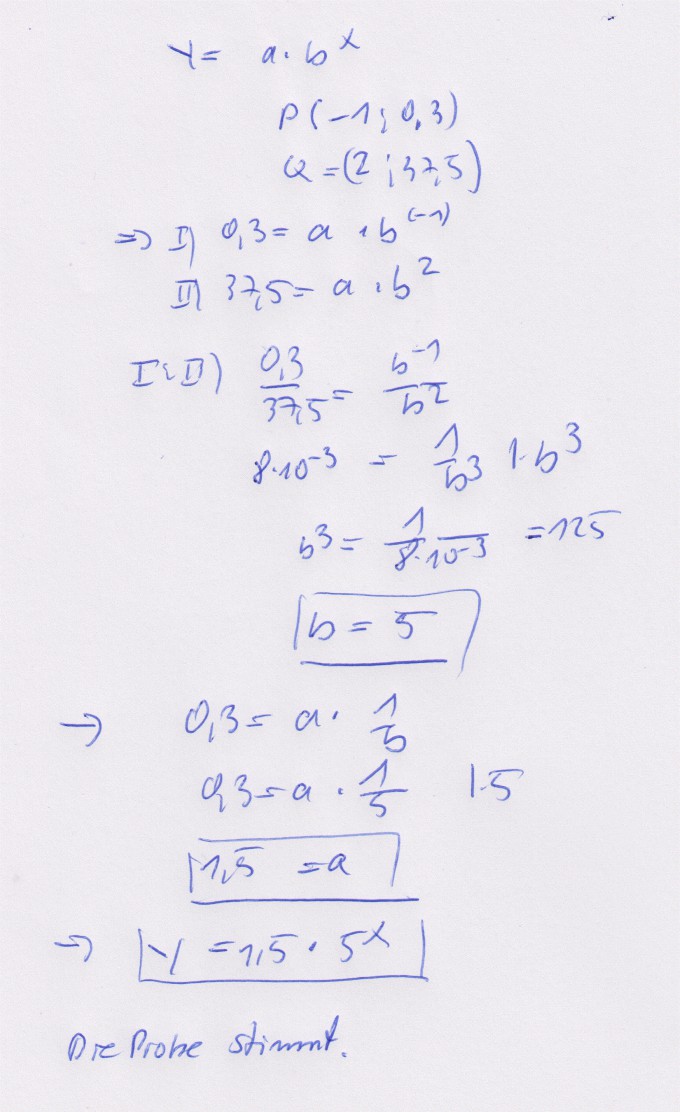 y = a · b^x
P(-1; 0,3)
Q = (2; 37,5)
=> I) 0,3 = a · b^(-1)
II) 37,5 = a · b^2
I:II) 0,3/37,5 = b^-1/b^2
8·10^-3 = 1/b^3 |·b^3
b^3 = 1/(8·10^-3) = 125
b = 5
→ 0,3 = a · 1/b
0,3 = a · 1/5 |·5
1,5 = a
→ y = 1,5 · 5^x
Die Probe stimmt.